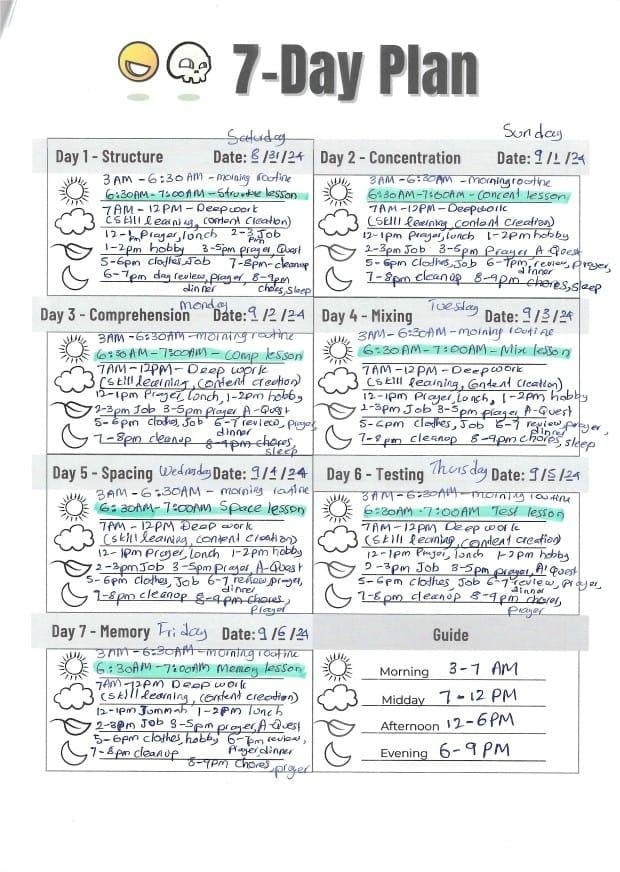 7-Day Plan
Saturday
Day 1 - Structure Date: 8/31/24
3AM - 6:30AM - morning routine
6:30AM - 7:00AM - Structure lesson
7AM - 12PM - Deep work
(skill learning, content creation)
12-1pm Prayer, lunch 2-3pm Job
1-2pm hobby 3-5pm prayer, Quest
5-6pm clothes, Job 7-8pm-cleanup
6-7pm day review, prayer, dinner 8-9pm chores, sleep
Sunday
Day 2 - Concentration Date: 9/1/24
3AM - 6:30AM - morning routine
6:30AM - 7:00AM - Concent lesson
7AM - 12PM - Deepwork
(skill learning, content creation)
12-1pm Prayer, lunch 1-2pm hobby
2-3pm Job 3-5pm Prayer A-Quest
5-6pm clothes, Job 6-7pm review, prayer, dinner
7-8pm cleanup 8-9pm chores, sleep
monday
Day 3 - Comprehension Date: 9/2/24
3AM - 6:30AM - morning routine
6:30AM - 7:00AM - Comp lesson
7AM - 12PM - Deep work
(skill learning, content creation)
12-1pm Prayer, lunch, 1-2pm hobby
2-3pm Job 3-5pm prayer A-Quest
5-6pm clothes, Job 6-7 review, prayer, dinner
7-8pm cleanup 8-9pm chores, sleep
Tuesday
Day 4 - Mixing Date: 9/3/24
3AM - 6:30AM - morning routine
6:30AM - 7:00AM - Mix lesson
7AM - 12PM - Deepwork
(skill learning, content creation)
12-1pm Prayer, lunch, 1-2pm hobby
2-3pm Job 3-5pm prayer A-Quest
5-6pm clothes, Job 6-7 review, prayer, dinner
7-8pm cleanup 8-9pm chores, sleep
Day 5 - Spacing Wednesday Date: 9/4/24
3AM - 6:30AM - morning routine
6:30AM - 7:00AM Space lesson
7AM - 12PM Deep work
(skill learning, content creation)
12-1pm Prayer, lunch 1-2pm hobby
2-3pm Job 3-5pm prayer, A-Quest
5-6pm clothes, Job 6-7 review, prayer, dinner
7-8pm cleanup 8-9pm chores, prayer
Day 6 - Testing Thursday Date: 9/5/24
3AM - 6:30AM - morning routine
6:30AM - 7:00AM Test lesson
7AM - 12PM Deep work
(skill learning, content creation)
12-1pm Prayer, lunch 1-2pm hobby
2-3pm Job 3-5pm prayer, A-Quest
5-6pm clothes, Job 6-7 review, prayer, dinner
7-8pm cleanup 8-9pm chores, prayer
Day 7 - Memory Friday Date: 9/6/24
3AM - 6:30AM - morning routine
6:30AM - 7:00AM Memory lesson
7AM - 12PM Deep work
(skill learning, content creation)
12-1pm Jummah 1-2pm lunch
2-3pm Job 3-5pm prayer, A-Quest
5-6pm clothes, hobby 6-7pm review, Prayer dinner
7-8pm cleanup 8-9pm chores, prayer
Guide
Morning 3-7 AM
Midday 7-12 PM
Afternoon 12-6PM
Evening 6-9PM